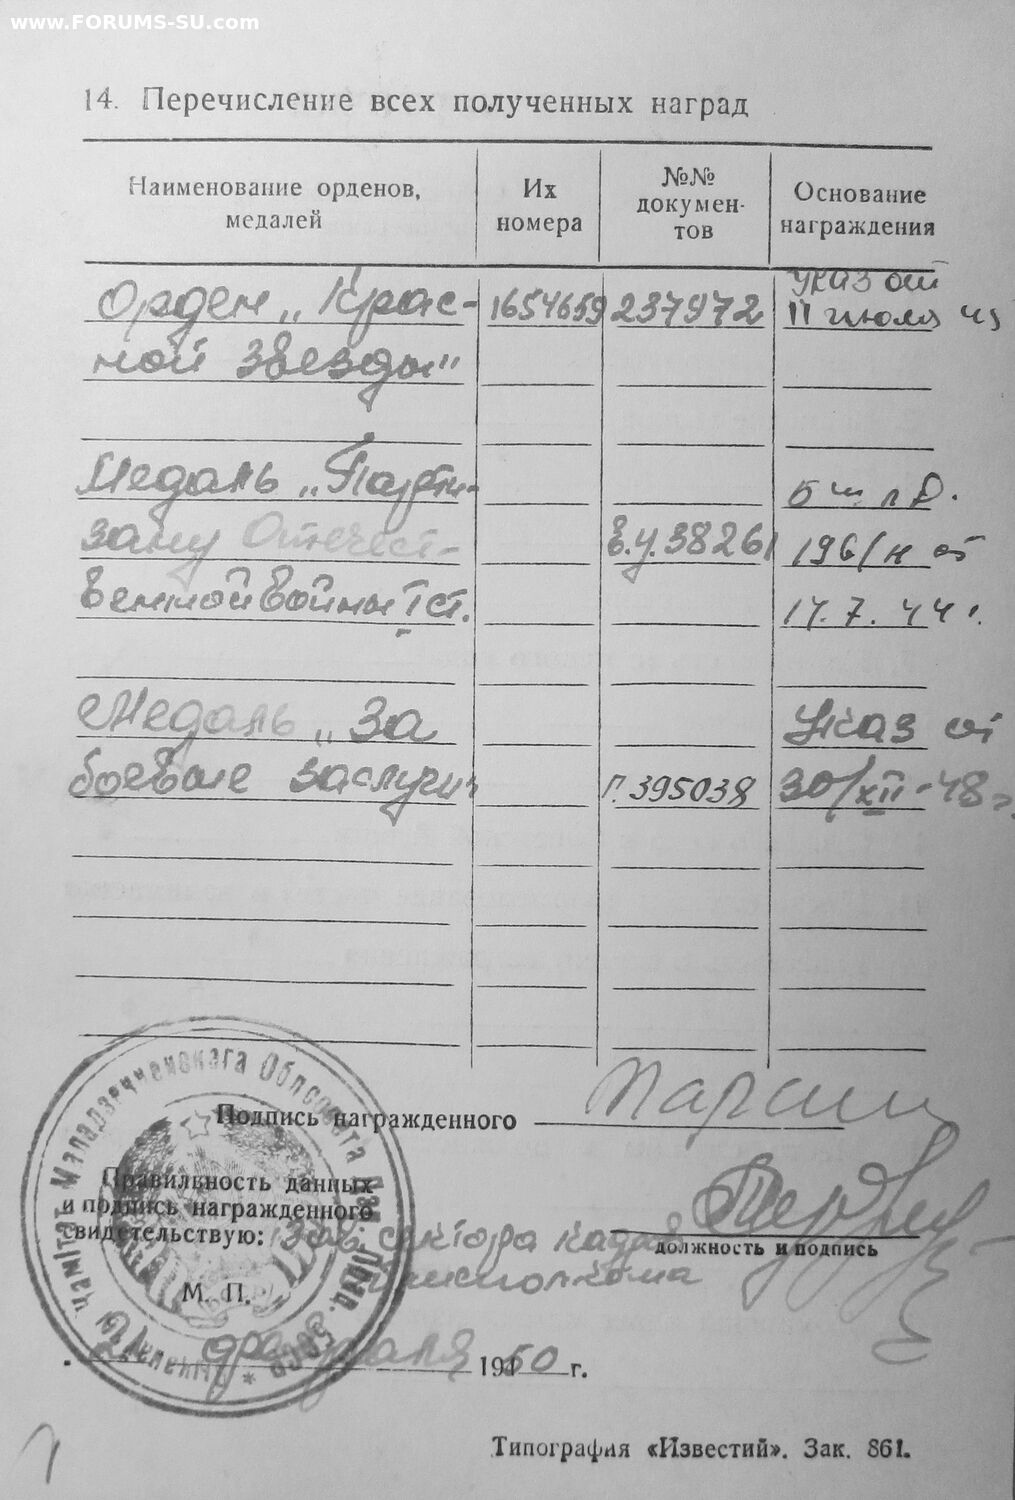 www.FORUMS-SU.com
14. Перечисление всех полученных наград
Наименование орденов, медалей
Их номера
№№ докумен- тов
Основание награждения
Указ от
Орден „Крас- 1654659 237972 11 июля 45
ной звезды"
Медаль „Парти- Б Ш П Д.
зану Отечест- Е.У.38261 196/н от
венной войны I ст. 17.7.44 г.
Медаль „За Указ от
боевые заслуги" Г.395038 30/XII-48 г.
Подпись награжденного
Правильность данных
и подпись награжденного
свидетельствую: Зав. сектора кадров
должность и подпись
исполкома
М. П.
февраля 1950 г.
Типография «Известий». Зак. 861.